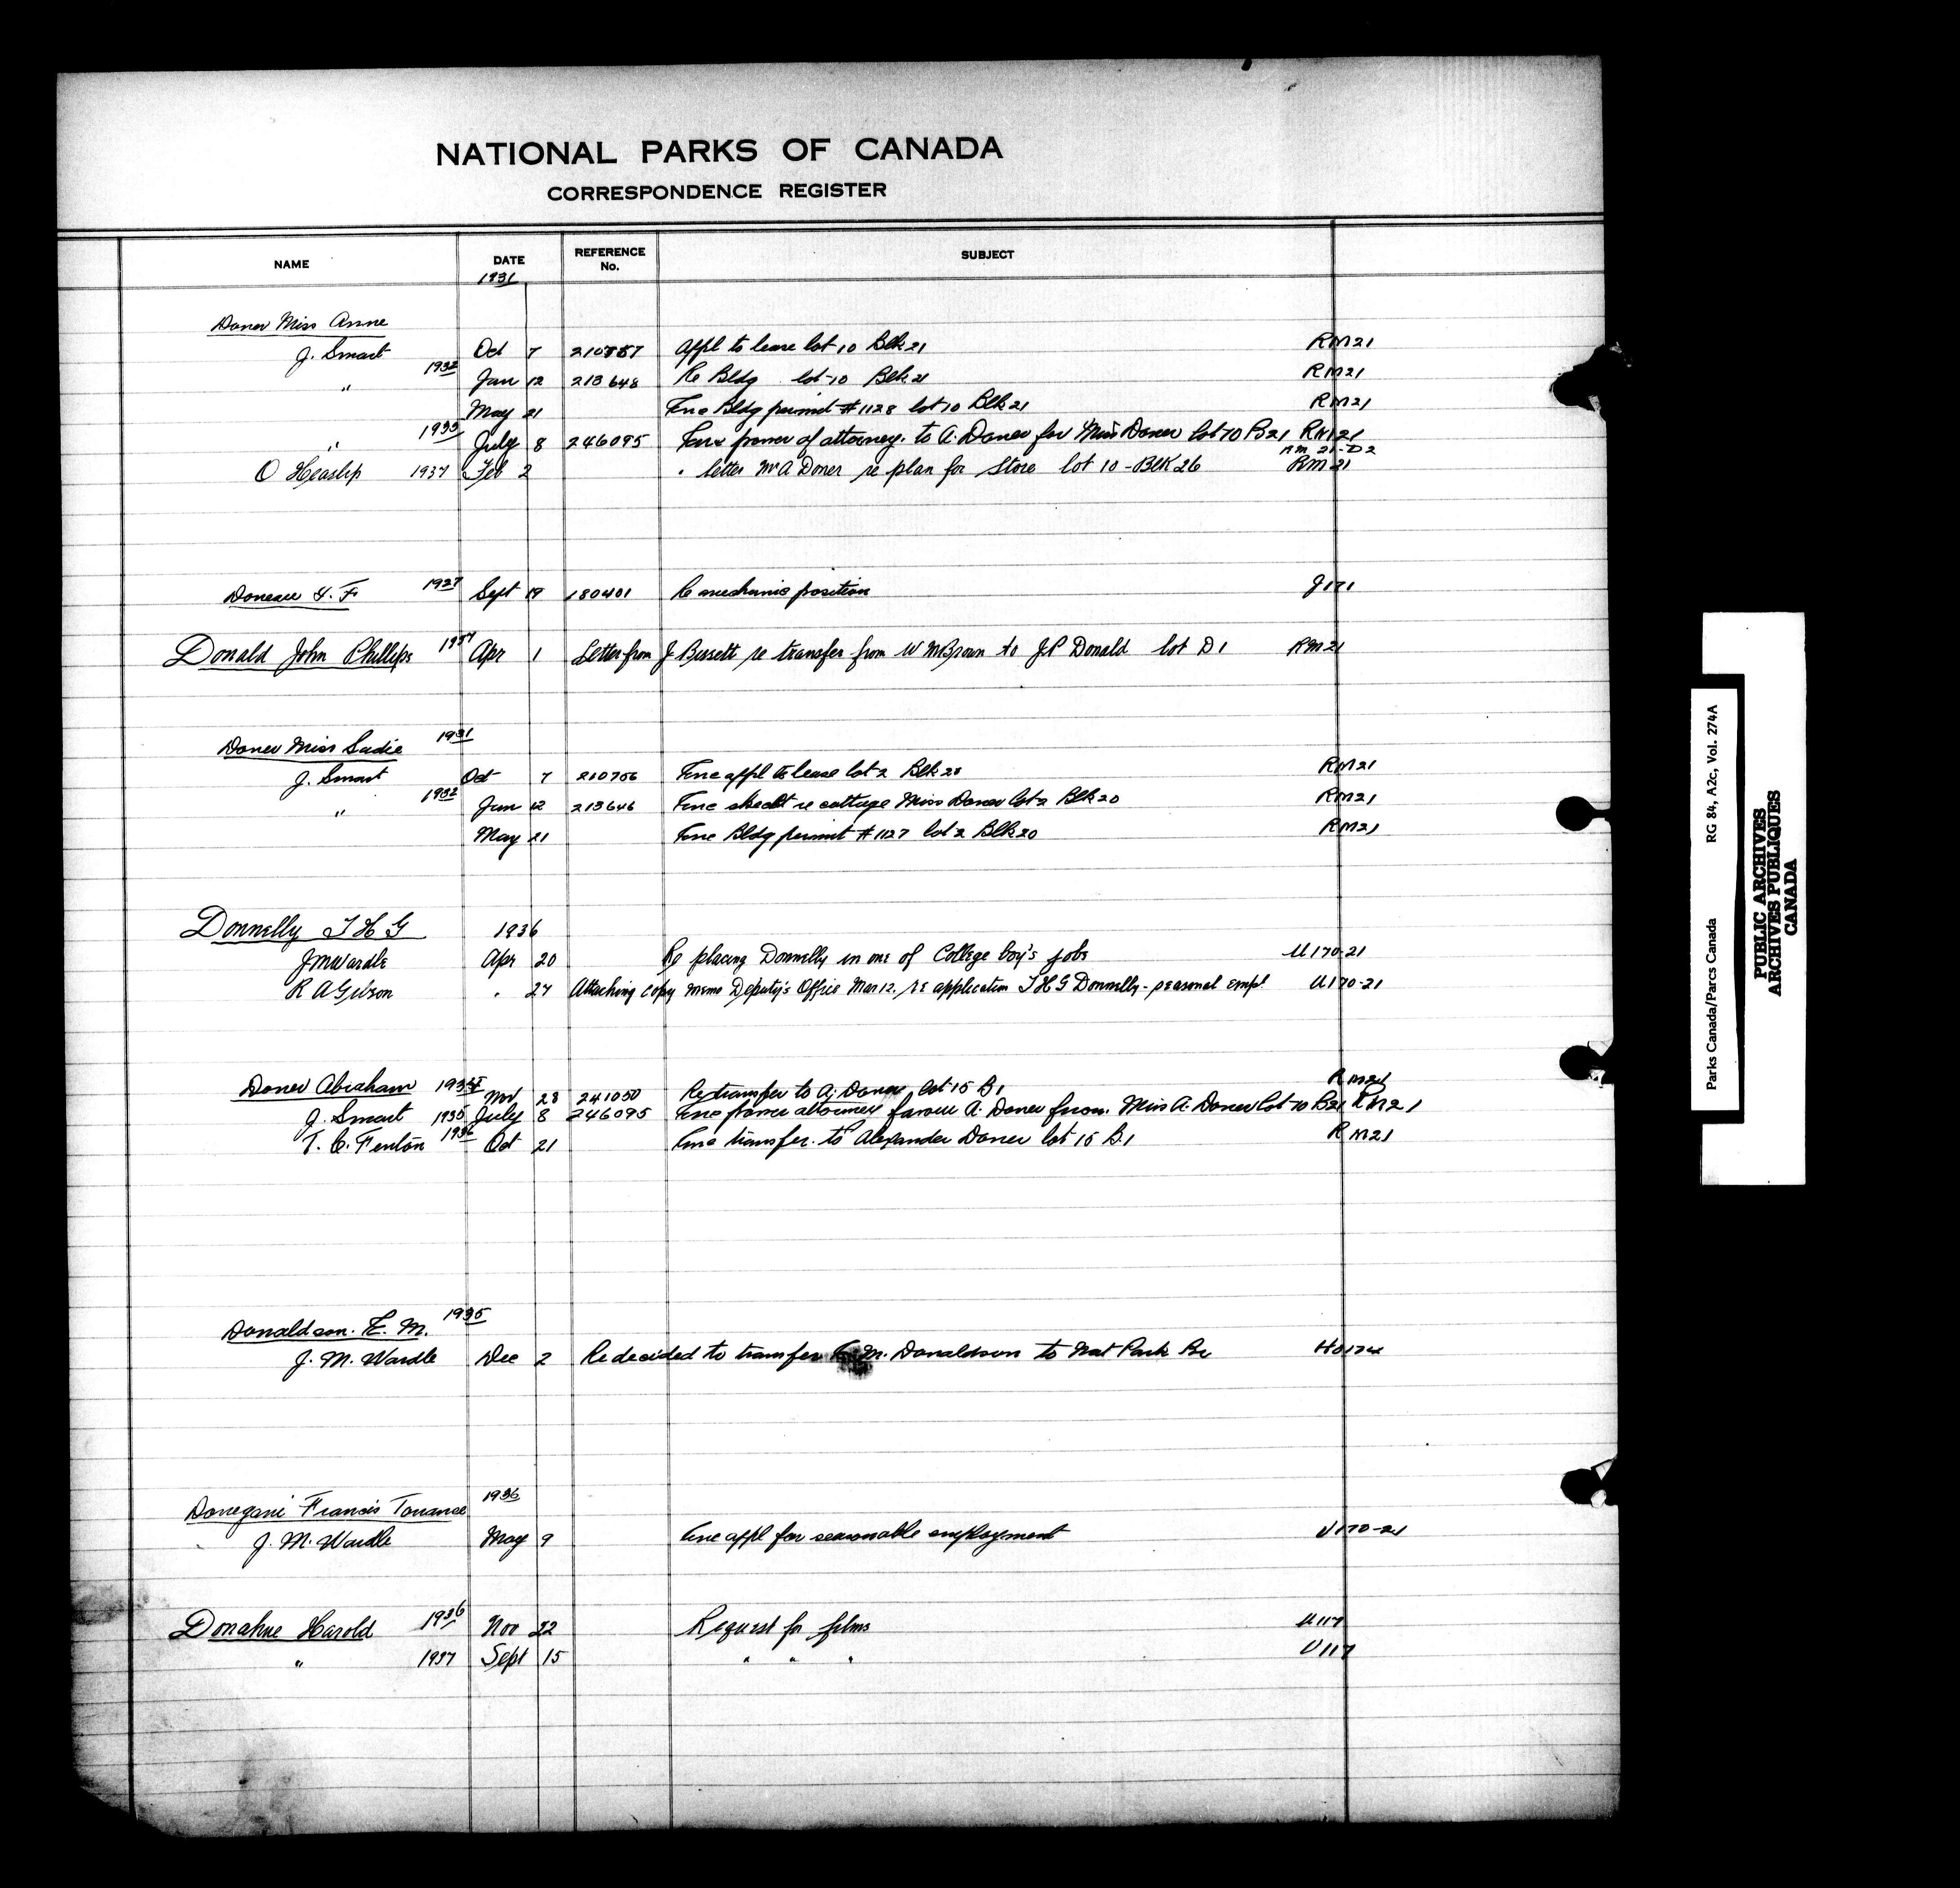 NATIONAL PARKS OF CANADA
CORRESPONDENCE REGISTER
NAME DATE REFERENCE No. SUBJECT
1931
Doner Miss Anne
J. Smart Oct 7 210757 Appl to lease lot 10 Blk 21 RM21
" 1932 Jan 12 213648 Re Bldg lot 10 Blk 21 RM21
May 21 Enc Bldg permit #1128 lot 10 Blk 21 RM21
" 1935 July 8 246095 power of attorney. to A. Doner for Miss Doner lot 10 B21 RM21
RM 21-D2
O Heaslip 1937 Feb 2 " letter Mr A Doner re plan for Store lot 10 - Blk 26 RM21
1927 Sept 19 180401 Re mechanic position J171
Donald John Phillips 1937 Apr 1 Letter from J Bissett re transfer from W M Brown to J P Donald lot D1 RM21
Doner Miss Sadie 1931
J. Smart Oct 7 210756 Enc appl to lease lot 2 Blk 20 RM21
" 1932 Jan 12 213646 Enc sketch re cottage Miss Doner lot 2 Blk 20 RM21
May 21 Enc Bldg permit #1127 lot 2 Blk 20 RM21
Donnelly T H G 1936
J M Wardle Apr 20 Re placing Donnelly in one of College boy's jobs U170-21
R A Gibson " 27 Attaching copy memo Deputy's Office Mar 12. re application T H G Donnelly - seasonal empl. U170-21
Doner Abraham Nov 28 241050 Re transfer to A. Doner lot 15 B.1 RM21
J. Smart 1935 July 8 246095 Enc power attorney favour A. Doner from Miss A. Doner lot 10 B21 RM21
T. C. Fenton 1936 Oct 21 Enc transfer. to Alexander Doner lot 15 B.1 RM21
Donaldson. E. M. 1935
J. M. Wardle Dec 2 Re decided to transfer E. M. Donaldson to Nat Park Br
Donegani Francis Torrance 1936
J. M. Wardle May 9 Enc appl for seasonable employment U170-21
Donahue Harold 1936 Nov 22 Request for films U117
" 1937 Sept 15 " " " U117
Parks Canada/Parcs Canada RG 84, A2c, Vol. 274A
PUBLIC ARCHIVES
ARCHIVES PUBLIQUES
CANADA